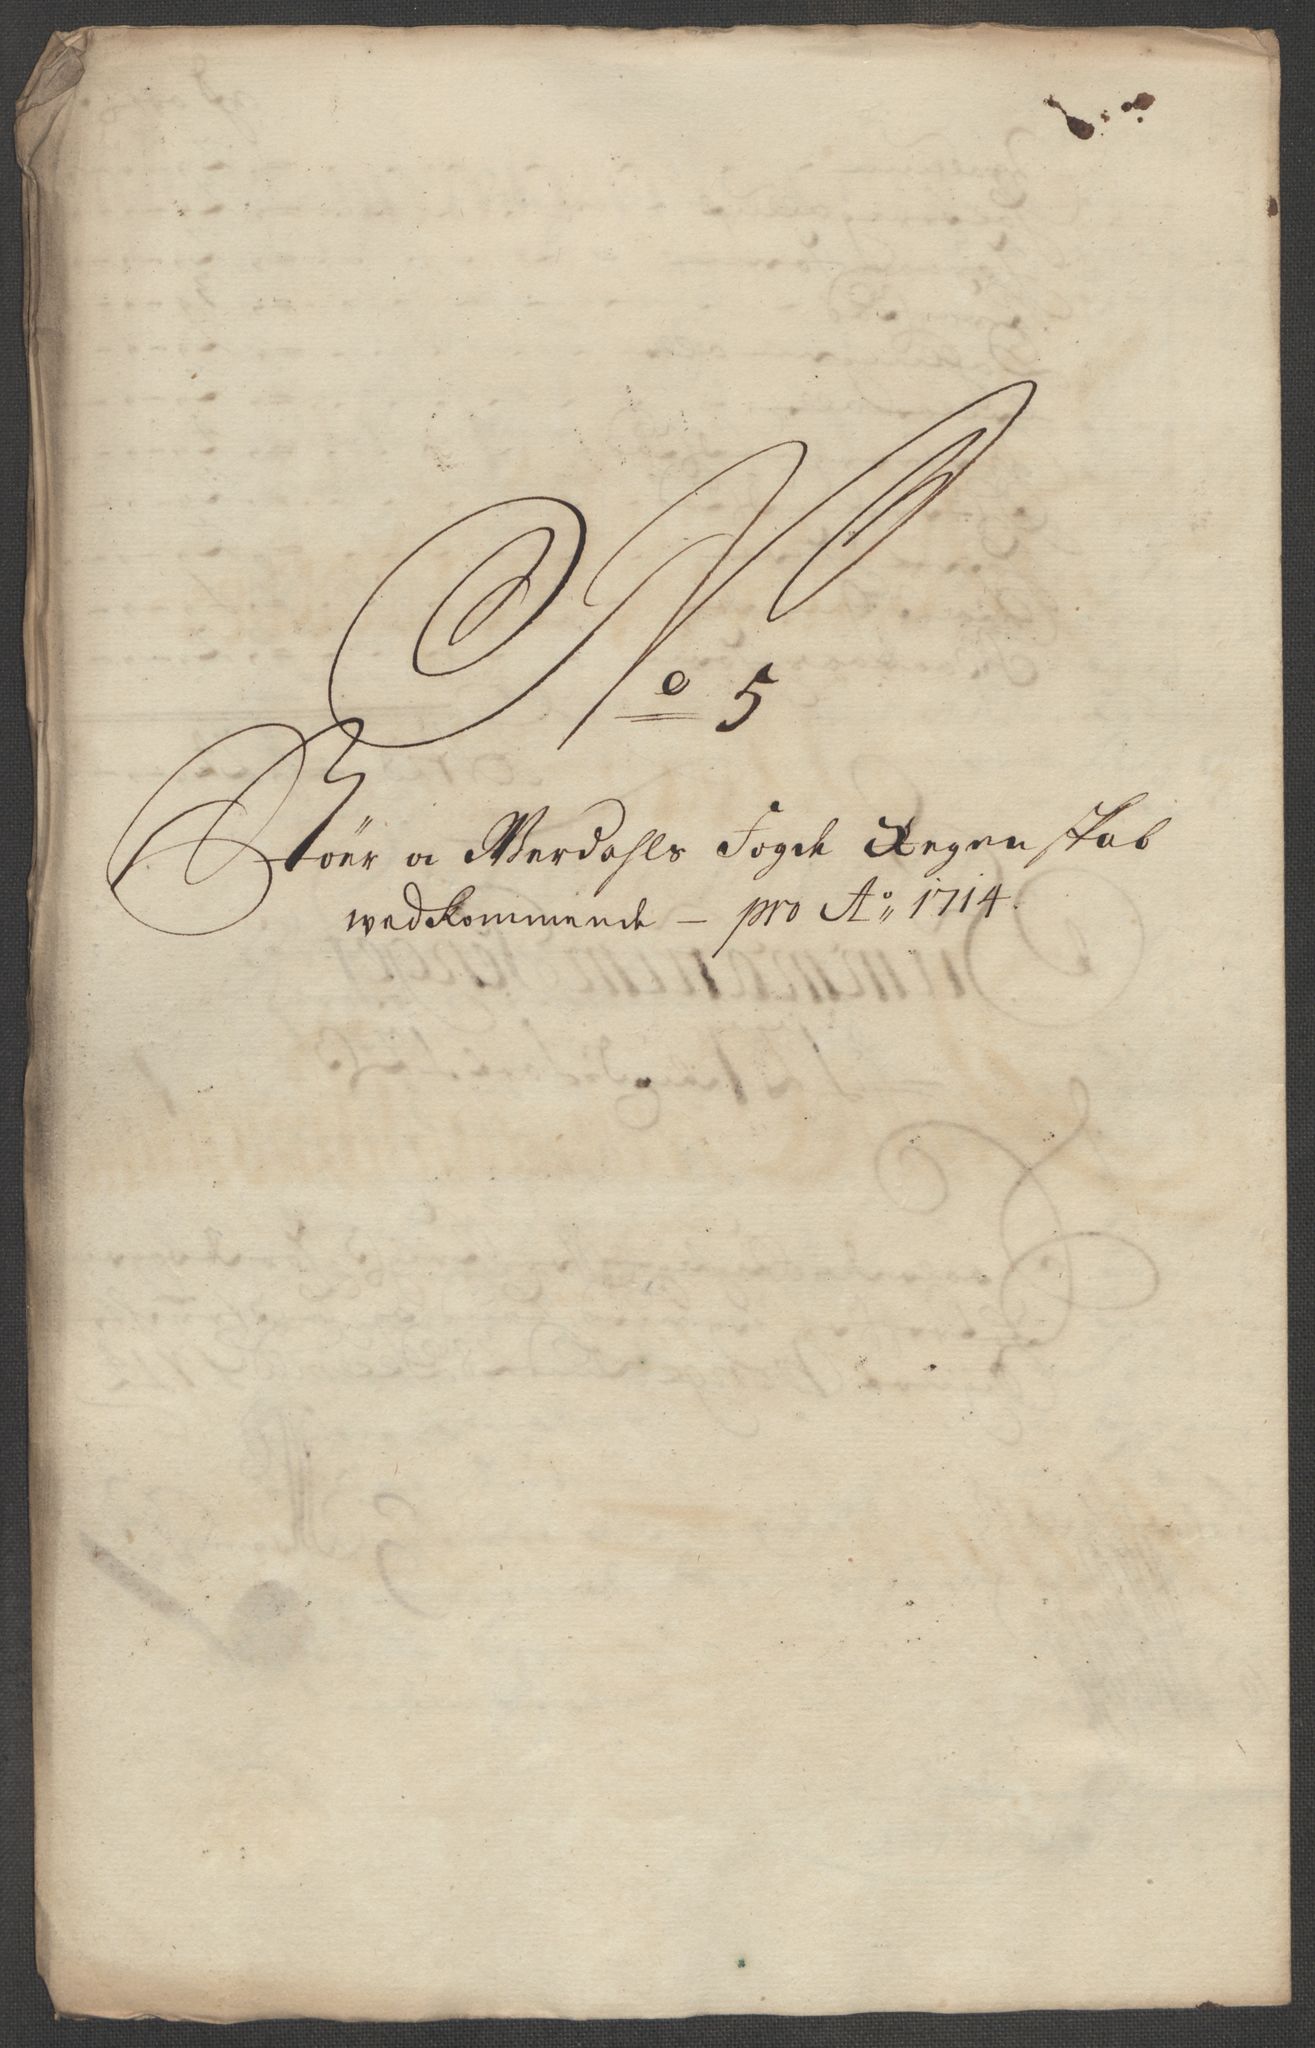 No 5
Stöer oc Werdahls Fogde Regenskab
wedkommende – pro Ao 1714.